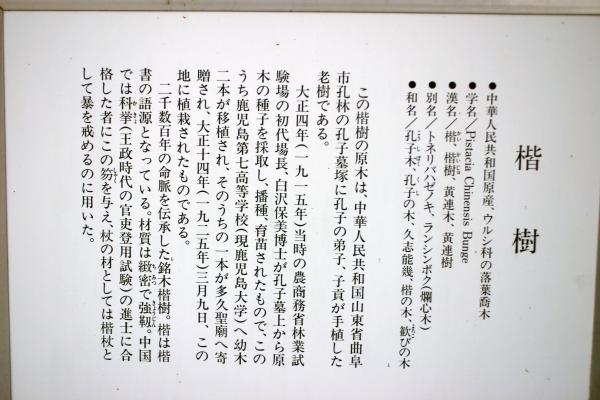 楷樹
●中華人民共和国原産、ウルシ科の落葉喬木
●学名／Pistacia Chinensis Bunge
●漢名／楷、楷樹、黄連木、黄連樹
●別名／トネリバハゼノキ、ランシンボク(爛心木)
●和名／孔子木、孔子の木、久志能幾、楷の木、歓びの木
この楷樹の原木は、中華人民共和国山東省曲阜
市孔林の孔子墓塚に孔子の弟子、子貢が手植した
老樹である。
大正四年(一九一五年)当時の農商務省林業試
験場の初代場長、白沢保美博士が孔子墓上から原
木の種子を採取し、播種、育苗されたもので、この
うち鹿児島第七高等学校(現鹿児島大学)へ幼木
二本が移植され、そのうちの一本が多久聖廟へ寄
贈され、大正十四年(一九二五年)三月九日、この
地に植栽されたものである。
二千数百年の命脈を伝承した銘木楷樹。楷は楷
書の語源となっている。材質は緻密で強靱。中国
では科挙(王政時代の官吏登用試験)の進士に合
格した者にこの笏を与え、杖の材としては楷杖と
して暴を戒めるのに用いた。